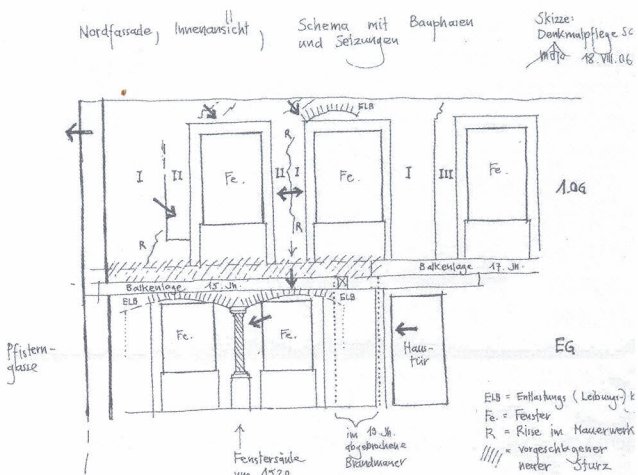 Nordfassade, Innenansicht, Schema mit Bauphasen
und Setzungen
Skizze:
Denkmalpflege SG
18.VIII.06
ELB
R
I
II
Fe.
II
I
Fe.
I
III
Fe.
1.OG
R
R
Balkenlage 17. Jh.
Balkenlage 15. Jh.
ELB
ELB
Fe.
Fe.
Haus-
tür
EG
Pfistern-
gasse
Fenstersäule
um 1520
im 19. Jh.
abgebrochene
Brandmauer
ELB = Entlastungs (Leibungs-)
Fe. = Fenster
R = Risse im Mauerwerk
= vorgeschlagener
neuer Sturz